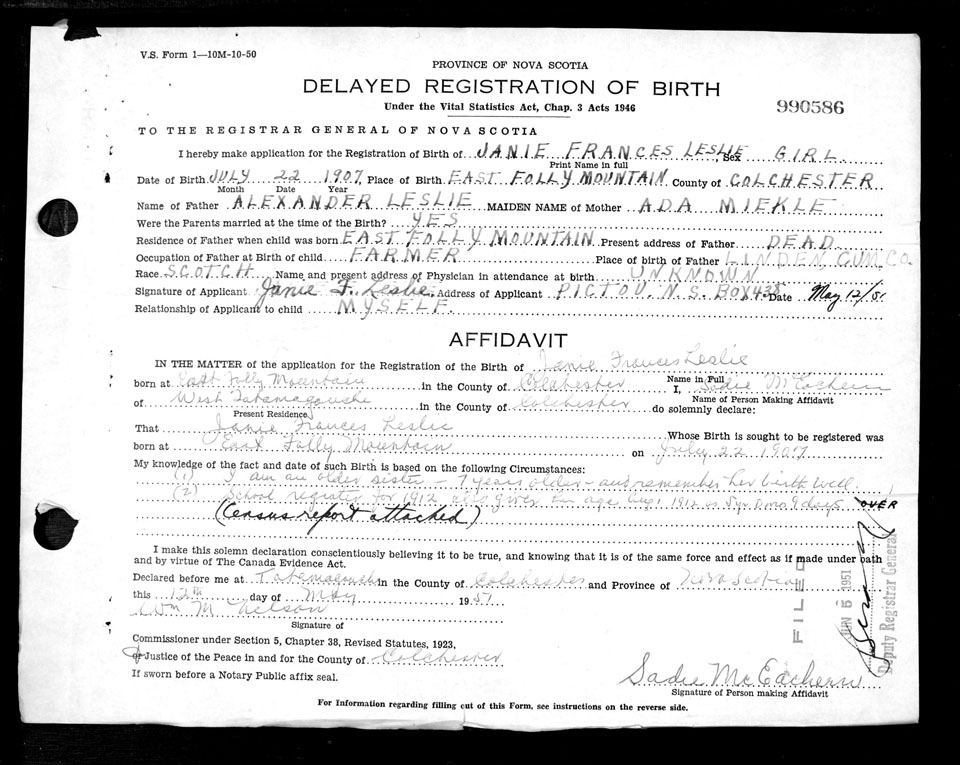 V.S. Form 1—10M-10-50
PROVINCE OF NOVA SCOTIA
DELAYED REGISTRATION OF BIRTH
Under the Vital Statistics Act, Chap. 3 Acts 1946
990586
TO THE REGISTRAR GENERAL OF NOVA SCOTIA
I hereby make application for the Registration of Birth of JANIE FRANCES LESLIE Sex GIRL
Print Name in full
Date of Birth JULY 22 1907, Place of Birth EAST FOLLY MOUNTAIN County of COLCHESTER
Month Date Year
Name of Father ALEXANDER LESLIE MAIDEN NAME of Mother ADA MIEKLE
Were the Parents married at the time of the Birth? YES
Residence of Father when child was born EAST FOLLY MOUNTAIN Present address of Father DEAD
Occupation of Father at Birth of child FARMER Place of birth of Father LINDEN, CUM. CO.
Race SCOTCH Name and present address of Physician in attendance at birth UNKNOWN
Signature of Applicant Janie F. Leslie Address of Applicant PICTOU, N.S. BOX 438 Date May 12/51
Relationship of Applicant to child MYSELF.
AFFIDAVIT
IN THE MATTER of the application for the Registration of Birth of Janie Frances Leslie
Name in Full
born at East Folly Mountain in the County of Colchester I, Sadie McEachern
Name of Person Making Affidavit
of West Tatamagouche in the County of Colchester do solemnly declare:
Present Residence
That Janie Frances Leslie Whose Birth is sought to be registered was
born at East Folly Mountain on July 22 1907
My knowledge of the fact and date of such Birth is based on the following Circumstances:
(1) I am an older sister - 7 years older - and remember her birth well.
(2) School register for 1912 also gives her age Aug 1, 1912 as 5 yr 0 mo 9 days OVER
(Census report attached)
I make this solemn declaration conscientiously believing it to be true, and knowing that it is of the same force and effect as if made under oath
and by virtue of The Canada Evidence Act.
Declared before me at Tatamagouche in the County of Colchester and Province of Nova Scotia
this 12th day of May 1951
Wm M Nelson
Signature of
Commissioner under Section 5, Chapter 38, Revised Statutes, 1923,
or Justice of the Peace in and for the County of Colchester
If sworn before a Notary Public affix seal.
Sadie McEachern
Signature of Person making Affidavit
For Information regarding filling out of this Form, see instructions on the reverse side.
FILED
JUN 5 1951
Deputy Registrar General